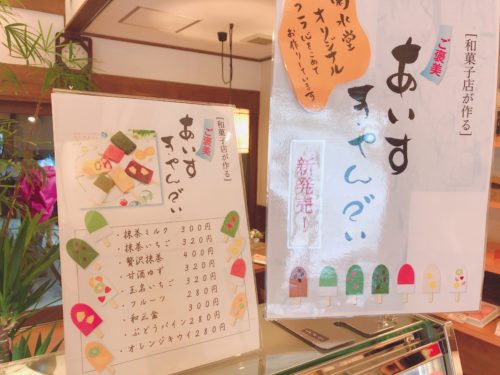 [和菓子店が作る]
ご褒美
あいす
きゃんでぃ
・抹茶ミルク 300円
・抹茶いちご 320円
・贅沢抹茶 400円
・甘酒ゆず 320円
・玉名いちご 320円
・フルーツ 280円
・和三盆 300円
・ぶどうパイン 280円
・オレンジキウイ 280円
水堂
オリジナル
つう心をこめて
お作りしています
[和菓子店が作る]
ご褒美
あいす
きゃんでぃ
新発売!